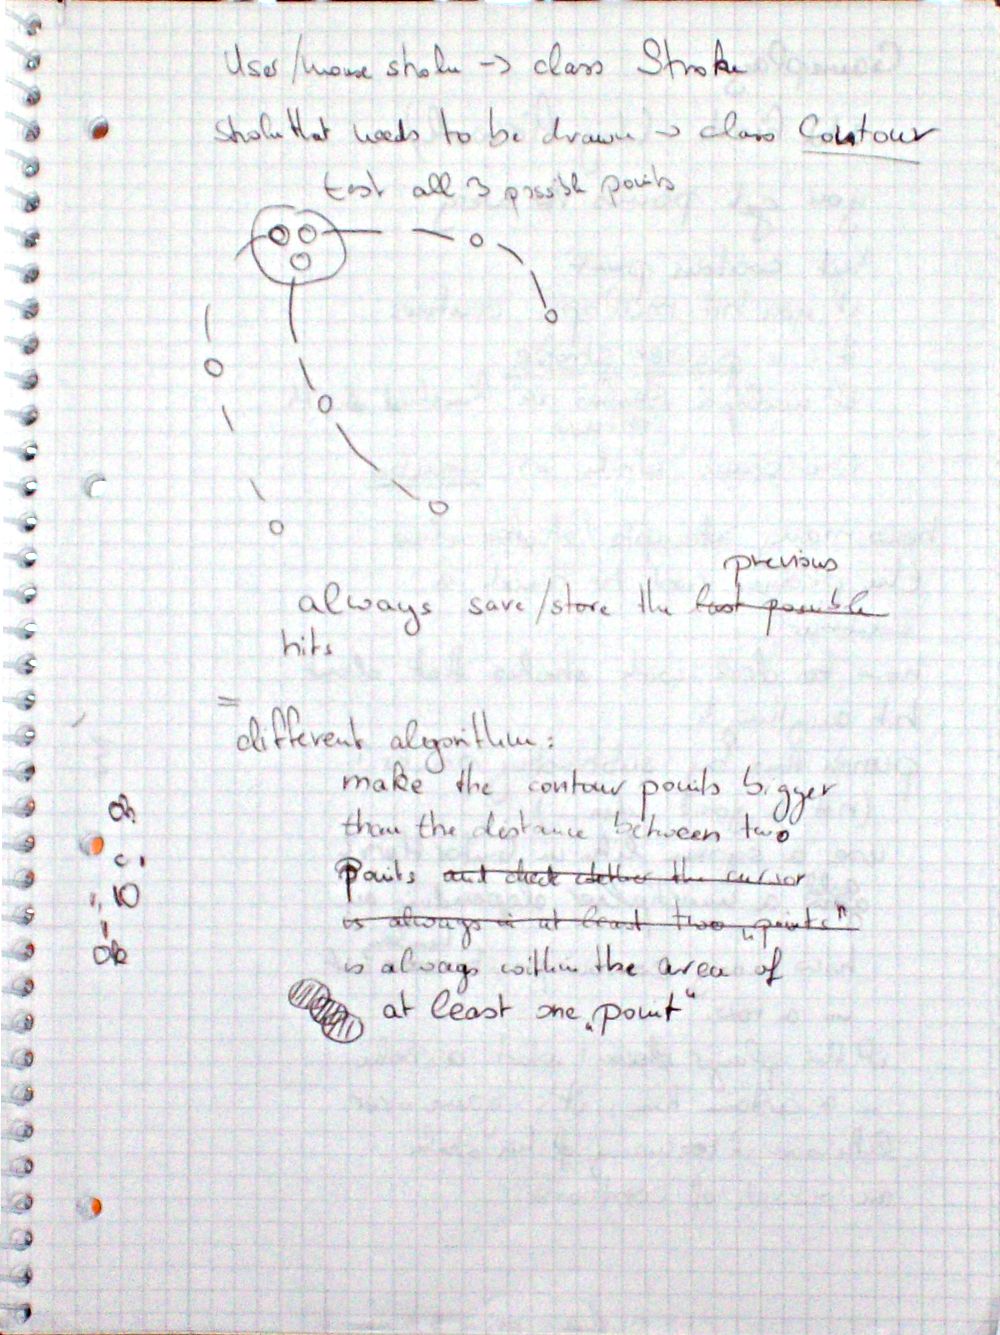 User/mouse stroke -> class Stroke
stroke that needs to be drawn -> class Contour
test all 3 possible points
previous
always save/store the last possible
hits
=
different algorithm:
make the contour points bigger
than the distance between two
Points and check whether the cursor
is always in at least two „points"
is always within the area of
at least one „point"
Ok
10
Ok